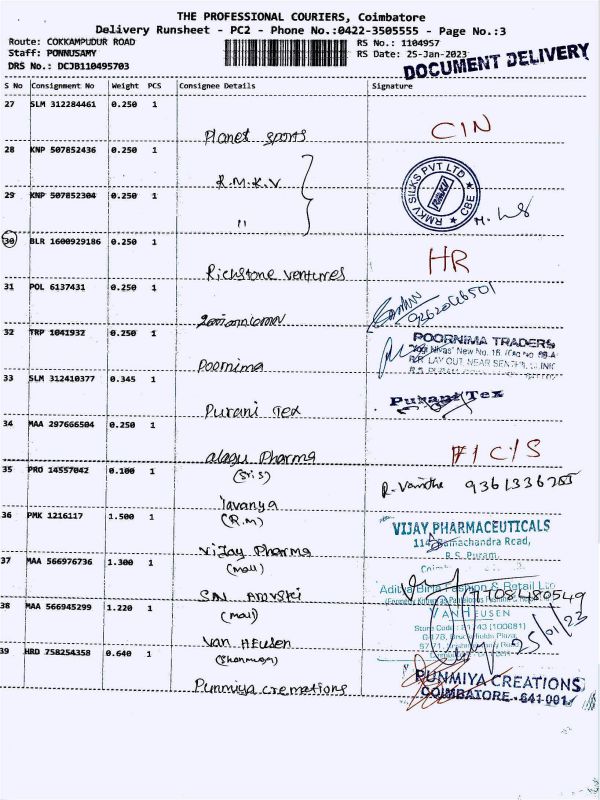 THE PROFESSIONAL COURIERS, Coimbatore
Delivery Runsheet - PC2 - Phone No.:0422-3505555 - Page No.:3
Route: COKKAMPUDUR ROAD
RS No.: 1104957
Staff: PONNUSAMY
RS Date: 25-Jan-2023
DRS No.: DCJB110495703
DOCUMENT DELIVERY
S No Consignment No Weight PCS Consignee Details Signature
27 SLM 312284461 0.250 1
Planet sports CIN
28 KNP 507852436 0.250 1
R.M.K.V
RMKV SILKS PVT LTD CBE
29 KNP 507852304 0.250 1
"
30 BLR 1600929186 0.250 1
Richstone ventures HR
31 POL 6137431 0.250 1
32 TRP 1041932 0.250 1
Poornima
POORNIMA TRADERS
33 SLM 312410377 0.345 1
Purani Tex
Purani Tex
34 MAA 297666504 0.250 1
alagu Pharma
35 PRO 14557042 0.100 1
lavanya
(R.m)
36 PMK 1216117 1.500 1
Vijay Pharma
(mall)
VIJAY PHARMACEUTICALS
114, Ramachandra Road,
R.S. Puram,
37 MAA 566976736 1.300 1
(mall)
Aditya Birla Fashion & Retail Ltd
7708480549
38 MAA 566945299 1.220 1
Van Heusen
VAN HEUSEN
25/01/23
39 HRD 758254358 0.640 1
Punmiya creations
PUNMIYA CREATIONS
COIMBATORE - 641 001